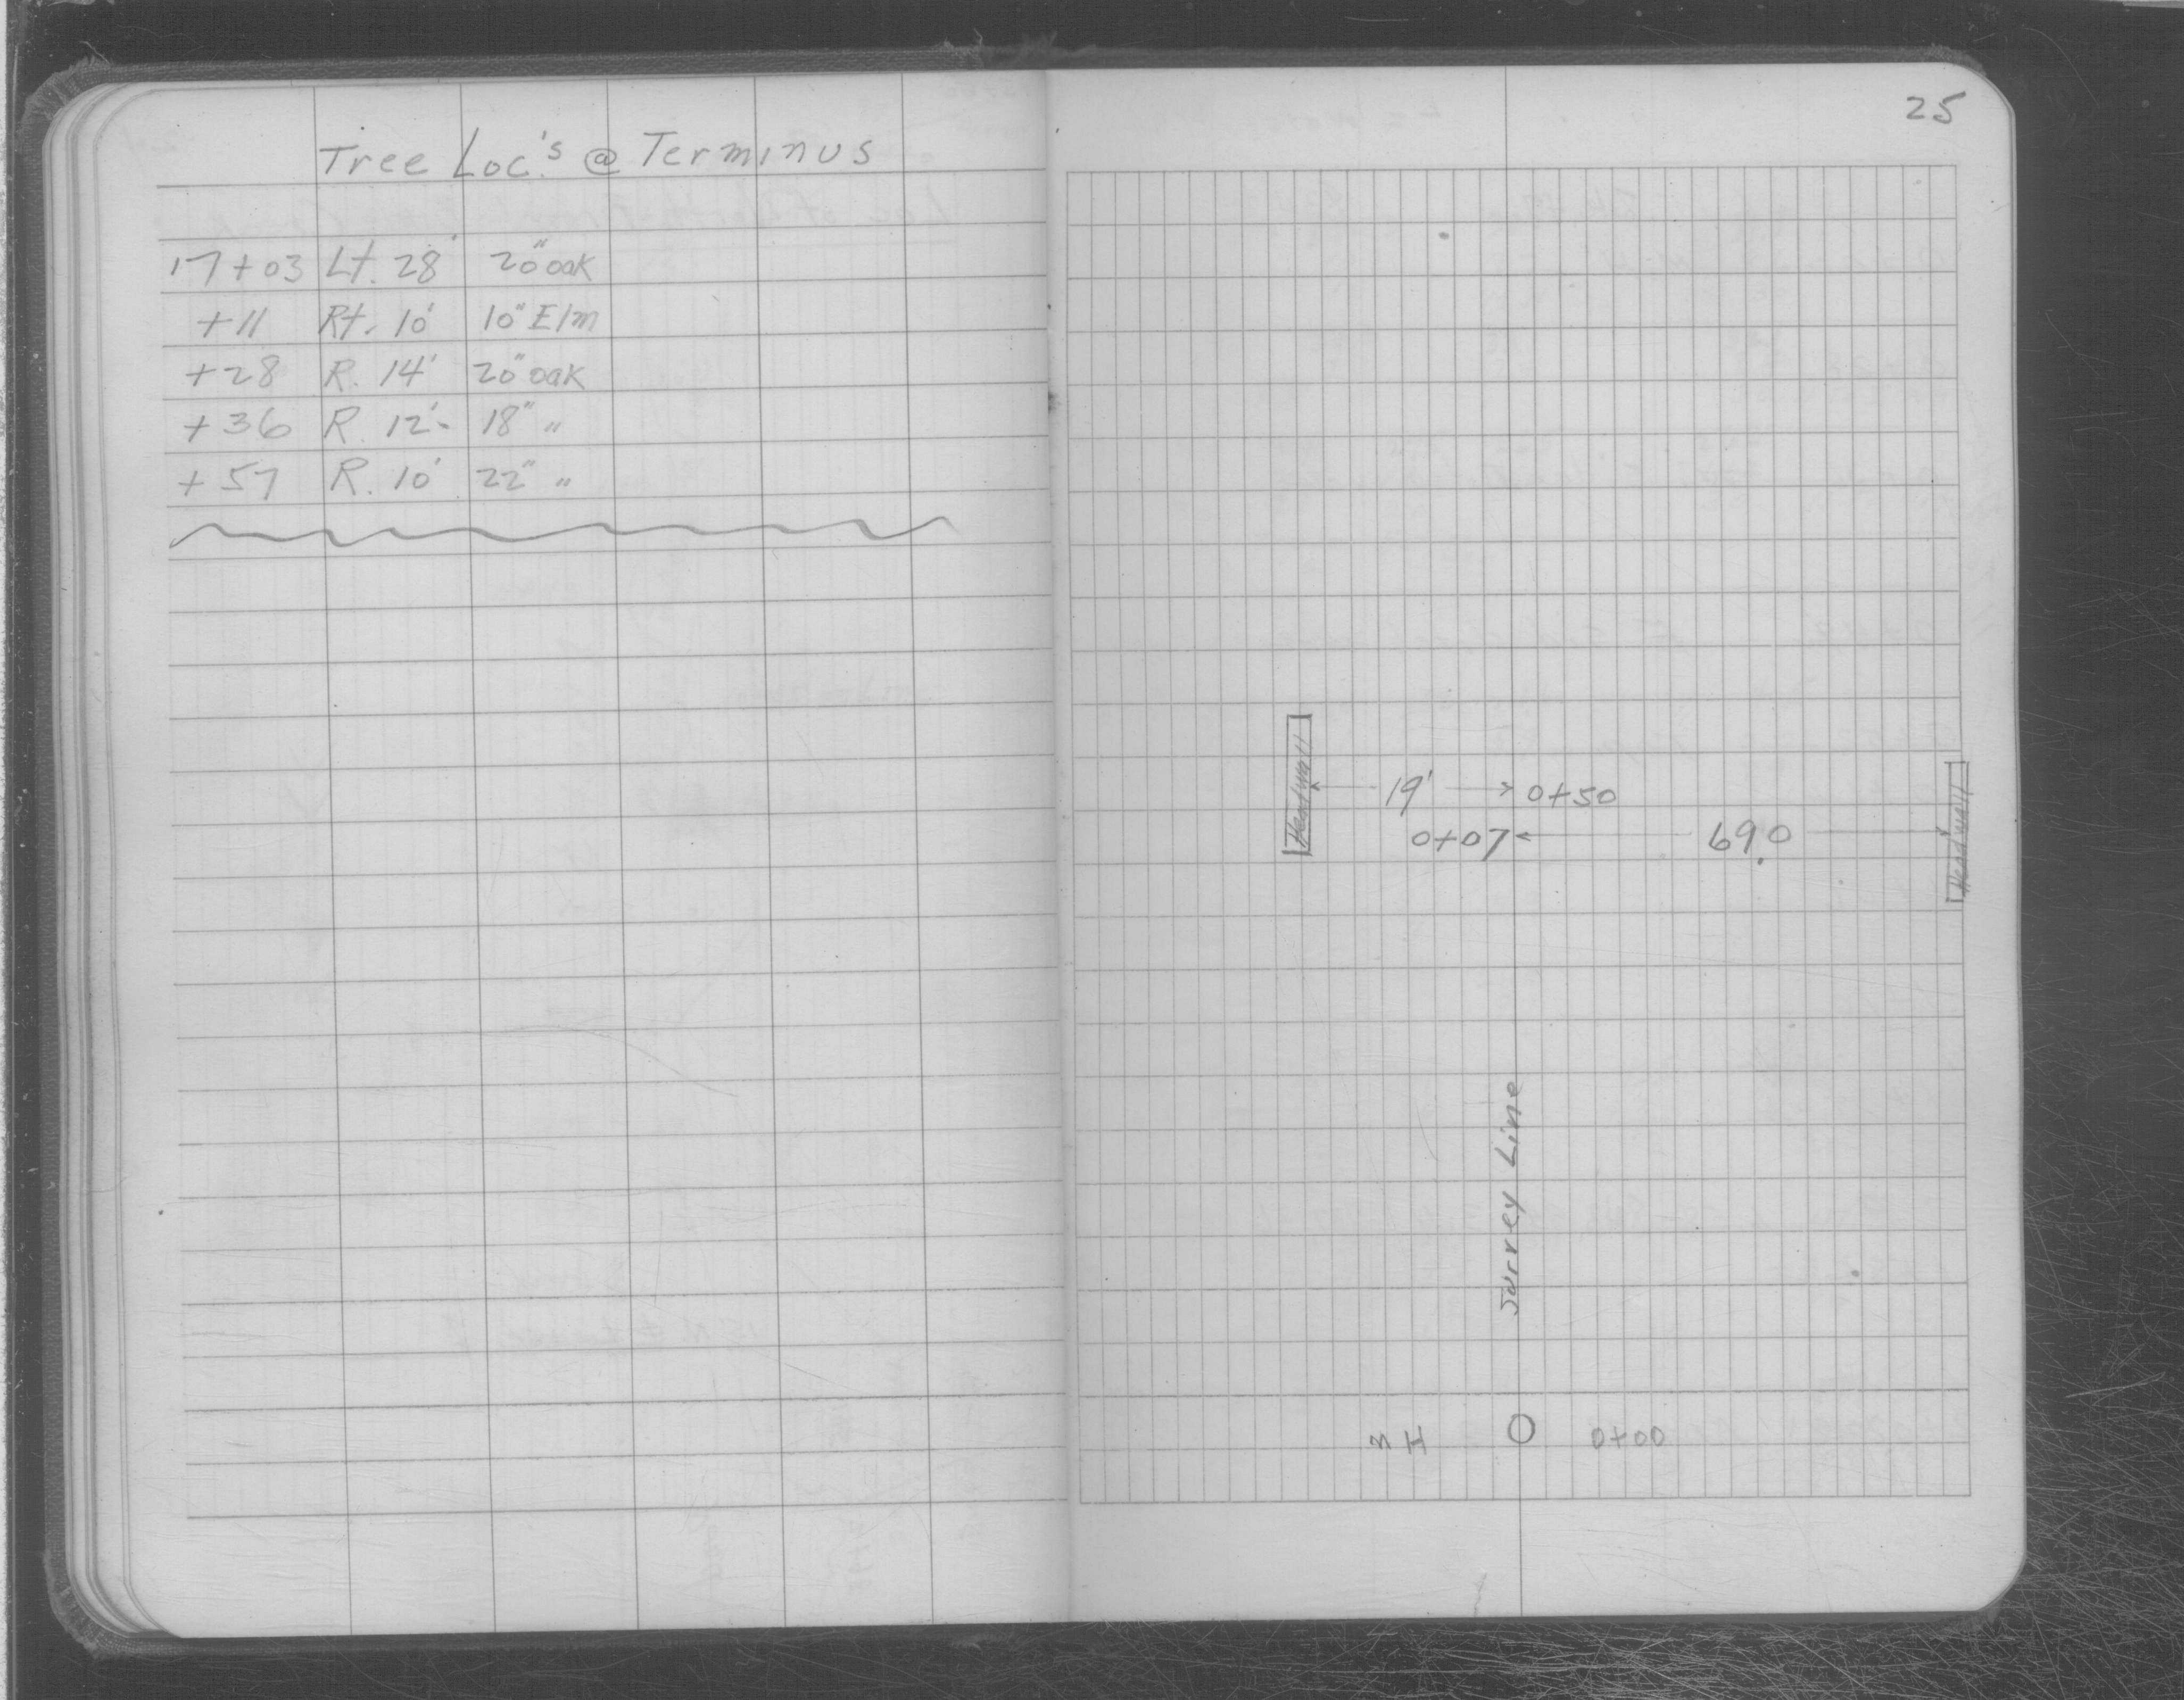 Tree Loc.'s @ Terminus
17+03 Lt. 28' 20" oak
+11 Rt. 10' 10" Elm
+28 R. 14' 20" oak
+36 R. 12'- 18" "
+57 R. 10' 22" "
25
Headwall
19' 0+50
0+07 69.0
Headwall
Survey Line
0+00